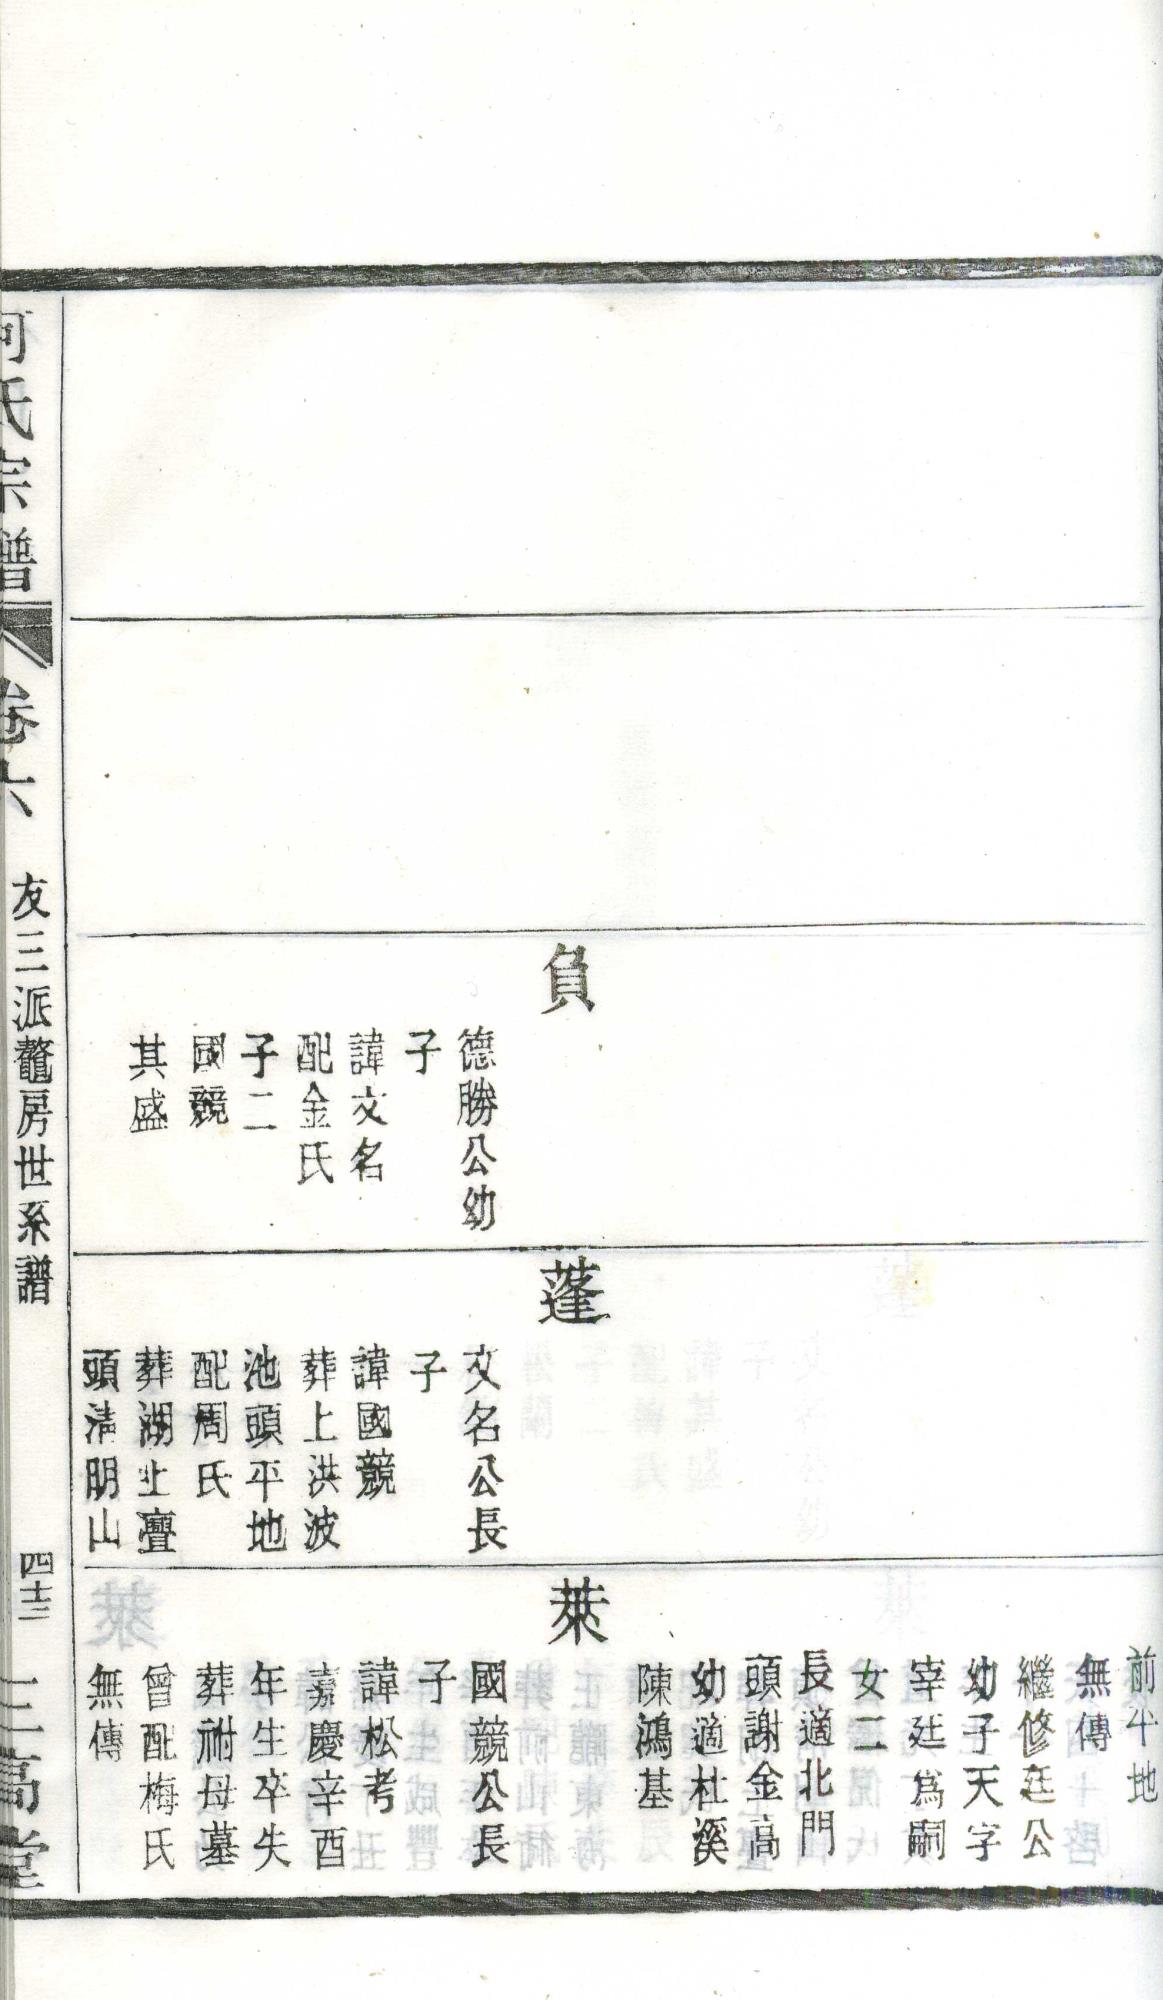 負
德勝公幼
子
諱文名
配金氏
子二
國競
其盛
蓬
文名公長
子
諱國競
葬上洪波
池頭平地
配周氏
葬湖上亹
頭清明山
前平地
無傳
繼修廷公
幼子天字
宰廷爲嗣
女二
長適北門
頭謝金高
幼適杜溪
陳鴻基
萊
國競公長
子
諱松考
嘉慶辛酉
年生卒失
葬祔母墓
曾配梅氏
無傳
何氏宗譜
卷六
友三派鼇房世系譜
四十三
三高堂